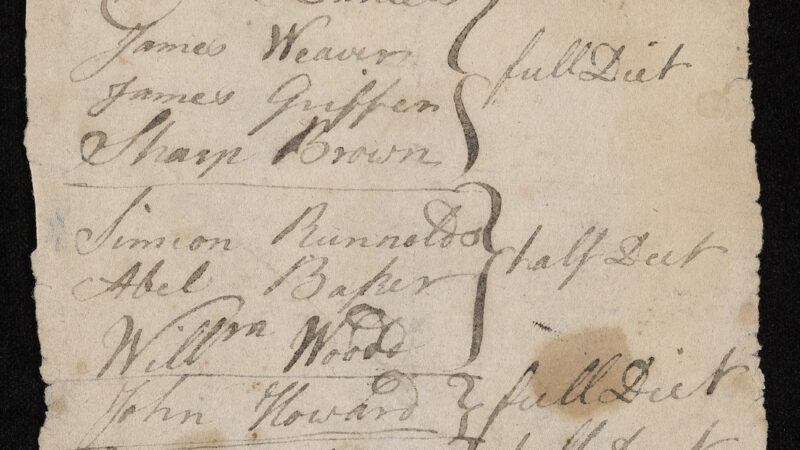 James Weaver
full Diet
James Griffen
Sharp Brown
Simion Runnolds
half Diet
Abel Baker
Willm Woodd
John Howard full Diet
half Diet